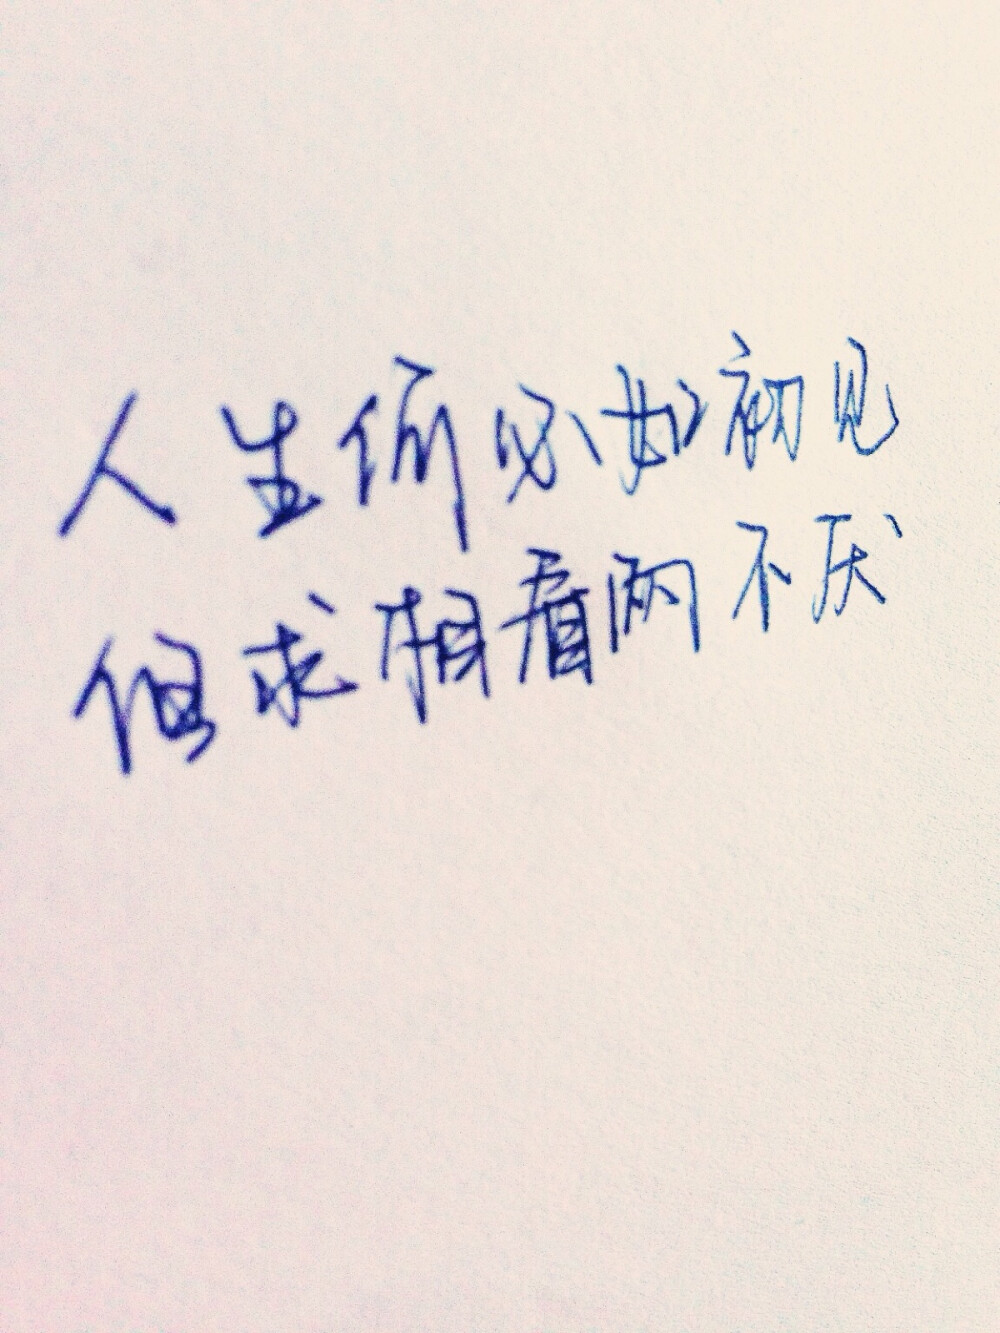 人生何必如初见
但求相看两不厌